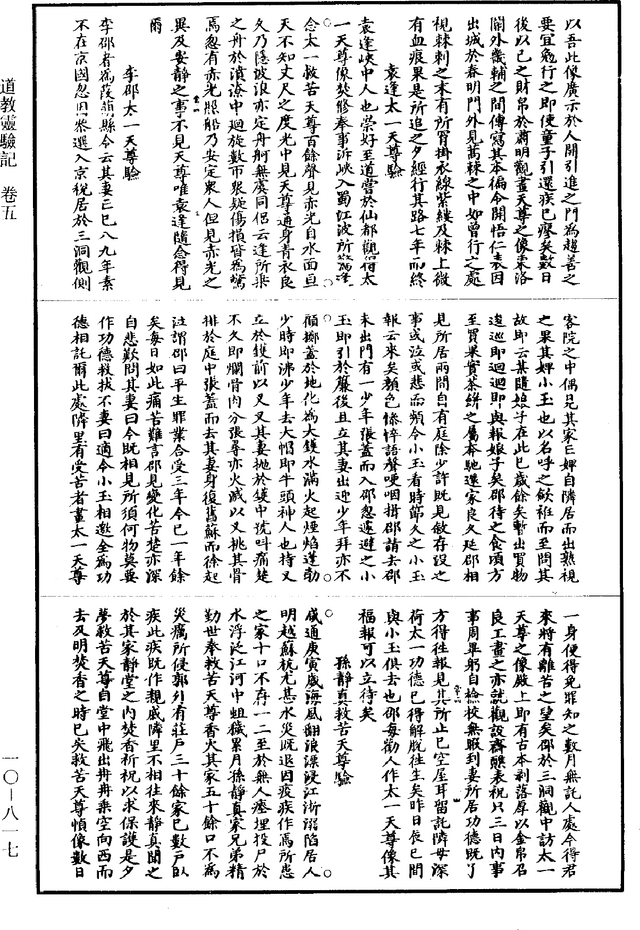 以吾此像廣示於人開引進之門為趨善之
要宜勉行之即使童子引還疾已瘳矣數日
後以己之財帛於蕭明觀畫天尊之像東洛
關外幾輔之間傳寫其本徧令開悟仁表因
出城於春明門外見萬棘之中如曾行之處
視棘刺之末有所罥掛衣線紫縷及棘上微
有血痕果是所追之夕經行其路七年而終
袁逢太一天尊驗
袁逢峽中人也崇好至道嘗於仙都觀㝛太
一天尊像焚修奉事泝峽入蜀江波所驚逢
念太一救苦天尊百餘聲見赤光自水面亘
天不知丈尺之度光中見天尊通身青衣良
久乃隱波浪亦定舟舸無虞同侶云逢所乘
之舟於濆潦中迴旋數帀衆疑傷損皆為驚
焉忽有赤光照船乃安定衆人但見赤光之
異及安靜之事不見天尊唯袁逢隨念得見
爾
李邵太一天尊驗
李邵者為葭萌縣令云其妻亡已八九年素
不在京國忽因參選入京稅居於三洞觀側
客院之中偶見其家亡婢自隣居而出熟視
之果其婢小玉也以名呼之斂袵而至問其
故即云某隨娘子在此已歲餘矣暫出買物
逡巡即迴迴即與報娘子矣邵待之食頃方
至買果實茶餅之屬奔馳還家良久延邵相
見所居兩間自有庭除少許既見敘存沒之
事或泣或悲而頻令小玉看時節久之小玉
報云來矣顏色慘悴語聲哽咽揖邵請去邵
未出門有一少年張蓋而入邵忽遽避之小
玉即引於厰後且立其妻出迎少年拜亦不
顧擲蓋於地化為大鑊水滿火起煙焰蓬勃
少時即沸少年去大帽即牛頭神人也持叉
立於鑊前以叉叉其妻拋於鑊中號叫痛楚
不久即爛骨肉分張尋亦火滅以叉挑其骨
排於庭中張蓋而去其妻身復舊蘇而徐起
泣謂邵曰平生罪業合受三年今已一年餘
矣每日如此痛苦難言邵見變化苦楚亦深
自悲歎問其妻曰今既相見所須何物莫要
作功德救拔不妻曰適令小玉相邀全為功
德相託爾此處隣里有受苦者畫太一天尊
一身便得免罪知之數月無託人處今得君
來將有離苦之望矣邵於三洞觀中訪太一
天尊之像殿上即有古本剥落厚以金帛召
良工畫之亦就觀設齋醮表祝只三日內事
事周畢躬自檢校無暇到妻所居功德既了
方得往報見其所止已空屋耳留託隣母深
荷太一功德已得解脫往生矣昨日辰巳間
與小玉俱去也邵每勸人作太一天尊像其
福報可以立待矣
孫靜真救苦天尊驗
咸通庚寅歲海風翻浪浸江浙溺陷居人
明越蘇杭尤甚水災既退因疫疾作焉所患
之家十口不存一二至於無人瘞埋投尸於
水浮泛江河中蛆穢累月孫靜真家兄弟精
勤世奉救苦天尊香火其家五十餘口不為
災癘所侵郭外有莊戶三十餘家已數戶臥
疾此疾既作親戚隣里不相往來靜真聞之
於其家靜堂之內焚香祈祝以求保護是夕
夢救苦天尊自堂中飛出冉冉乘空向西而
去及明焚香之時已失救苦天尊幀像數日
道教靈驗記 卷五
一〇—八一七